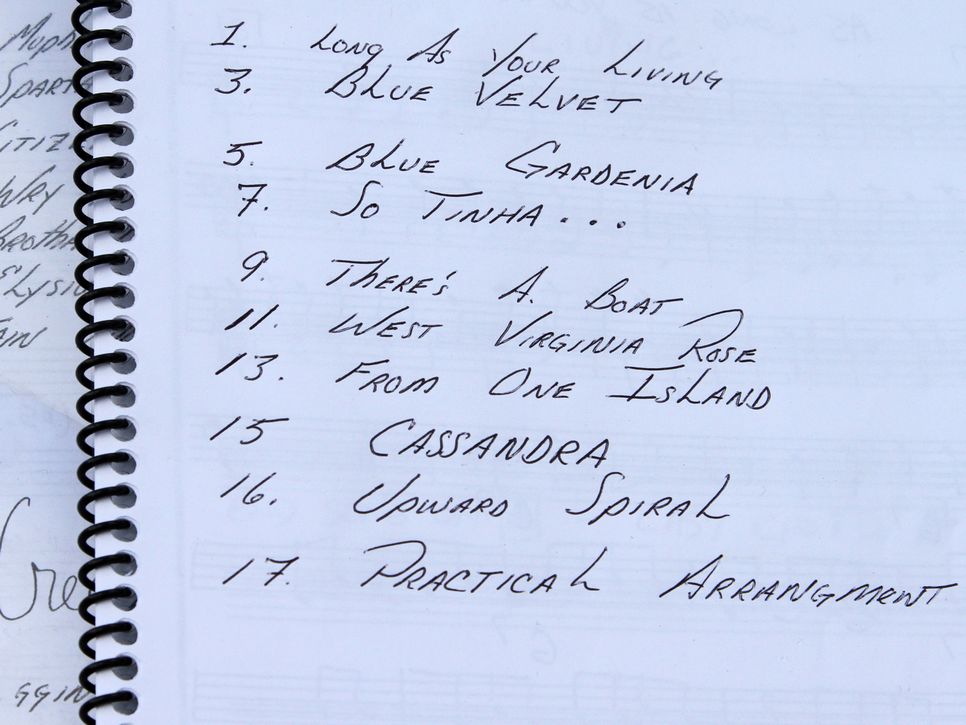 1. Long As Your Living
3. Blue Velvet
5. Blue Gardenia
7. So Tinha...
9. There's A. Boat
11. West Virginia Rose
13. From One Island
15 Cassandra
16. Upward Spiral
17. Practical Arrangment